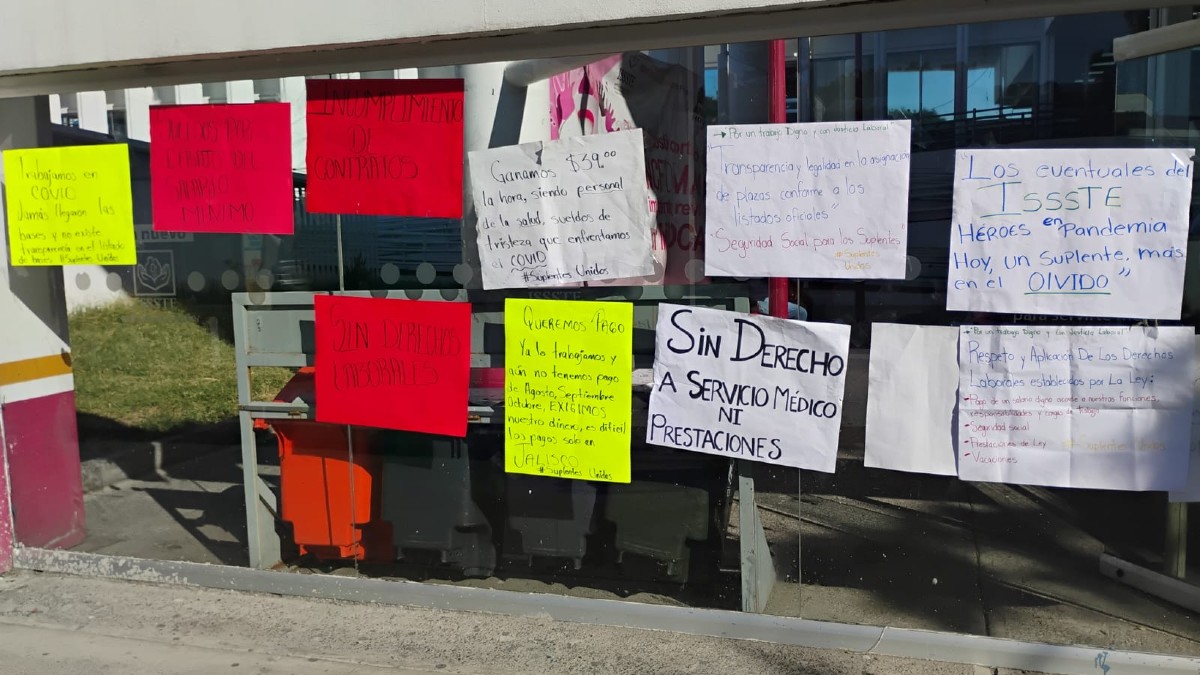 Trabajamos en
COVID
Jamás llegaron las
bases y no existe
transparencia en el listado
de bases #Suplentes Unidos
SALARIO
MINIMO
INCUMPLIMIENTO
DE
CONTRATOS
Ganamos $39.00
la hora, siendo personal
de la salud, sueldos de
tristeza que enfrentamos
el COVID
#Suplentes Unidos
→ Por un trabajo Digno y con Justicia Laboral
"Transparencia y legalidad en la asignación
de plazas conforme a los
listados oficiales"
"Seguridad Social para los Suplentes"
#Suplentes
Unidos
"Los eventuales del
ISSSTE
HÉROES en Pandemia
Hoy, un Suplente, más
en el OLVIDO"
SIN DERECHOS
LABORALES
QUEREMOS PAGO
Ya lo trabajamos y
aún no tenemos pago
de Agosto, Septiembre
Octubre, EXIGIMOS
nuestro dinero, es difícil
los pagos solo en
JALISCO
#Suplentes Unidos
SIN DERECHO
A SERVICIO MÉDICO
NI
PRESTACIONES
→ Por un trabajo Digno y con Justicia Laboral
Respeto y Aplicación De Los Derechos
Laborales establecidos por La Ley:
• Pago de un salario digno acorde a nuestras funciones
responsabilidades y cargas de trabajo
• Seguridad social
• Prestaciones de Ley #Suplentes Unidos
• Vacaciones
ISSSTE
ISSSTE